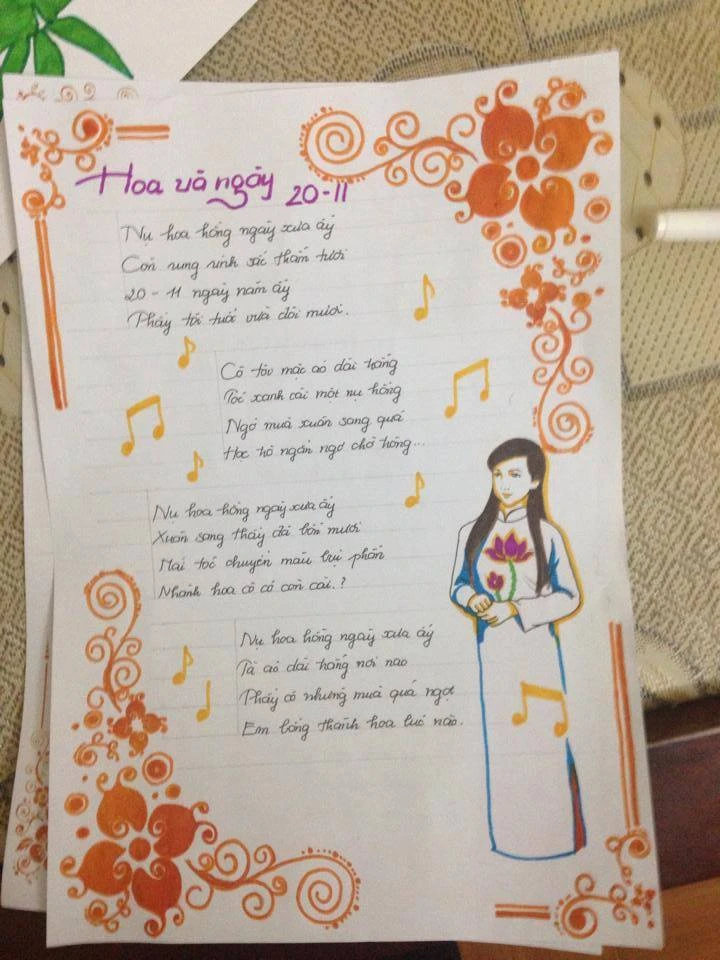 Hoa và ngày 20-11
Nụ hoa hồng ngày xưa ấy
Còn rung rinh sắc thắm tươi
20-11 ngày năm ấy
Thầy tôi tuổi vừa đôi mươi.
Cô tôi mặc áo dài trắng
Tóc xanh cài một nụ hồng
Ngỡ mùa xuân sang quá
Học trò ngẩn ngơ chờ trông...
Nụ hoa hồng ngày xưa ấy
Xuân sang thầy đã bốn mươi
Mái tóc chuyển màu bụi phấn
Nhành hoa cô có còn cài.?
Nụ hoa hồng ngày xưa ấy
Tà áo dài trắng nơi nào
Thầy cô những mùa quả ngọt
Em bỗng thành hoa lúc nào.